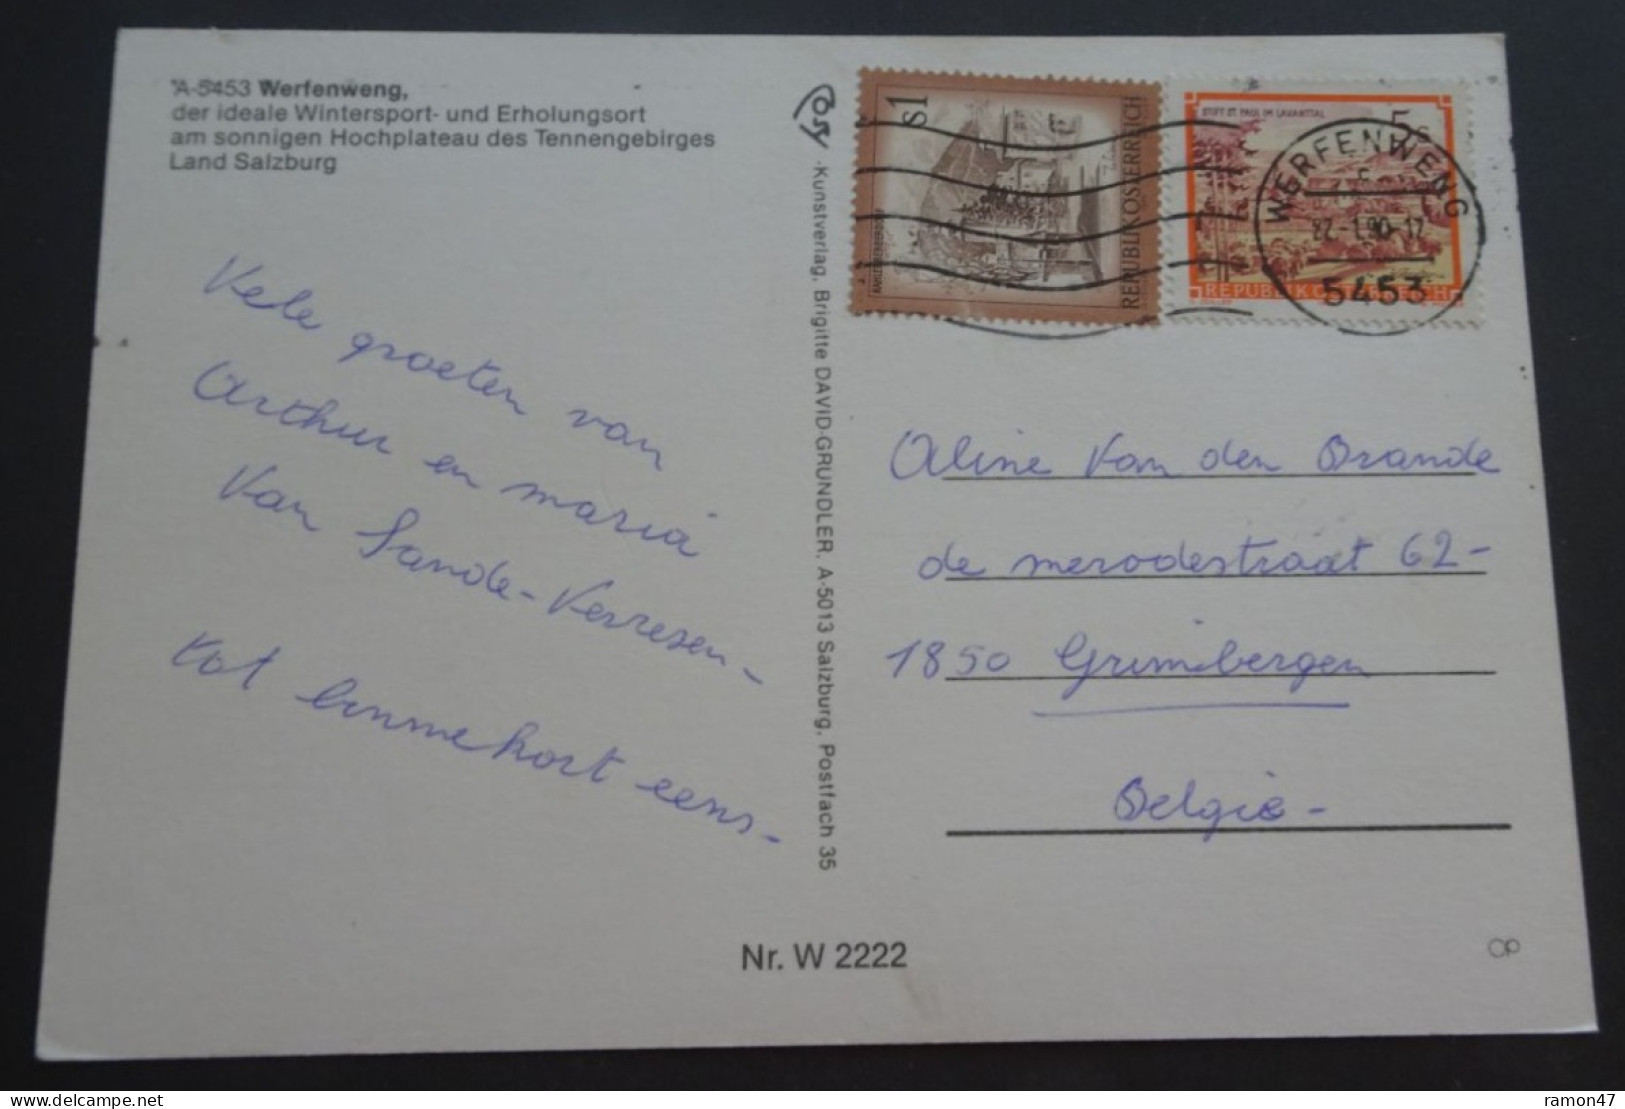 A-5453 Werfenweng,
der ideale Wintersport- und Erholungsort
am sonnigen Hochplateau des Tennengebirges
Land Salzburg
Cosy
-Kunstverlag, Brigitte DAVID-GRUNDLER, A-5013 Salzburg, Postfach 35
s1
REPUBLIK OSTERREICH
STIFT ST. PAUL IM LAVANTTAL
5s
REPUBLIK ÖSTERREICH
WERFENWENG
22.-1.90-12
5453
Vele groeten van
Arthur en maria
Van Sande-Verresen-
tot binnenkort eens-
Aline Van den Brande
de merodestraat 62-
1850 Grimbergen
België-
Nr. W 2222
ramon47